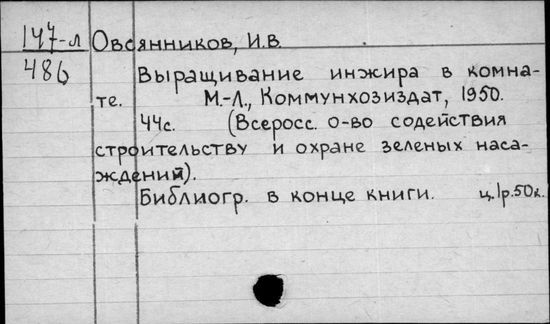 147-л
486
Овсянников, И.В.
Выращивание инжира в комна-
те. М.-Л., Коммунхозиздат, 1950.
44с. (Всеросс. о-во содействия
строительству и охране зеленых наса-
ждений).
Библиогр. в конце книги. ц.1р.50к.